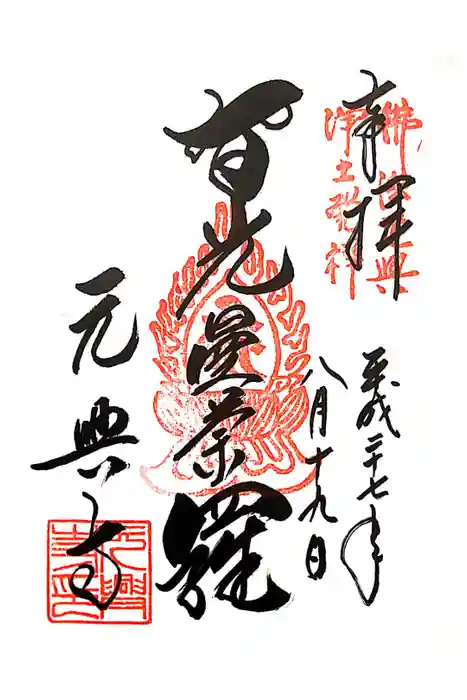 奉拝
佛法元興
淨土發祥
平成二十七年
八月十九日
智光曼荼羅
元興寺
元興寺印